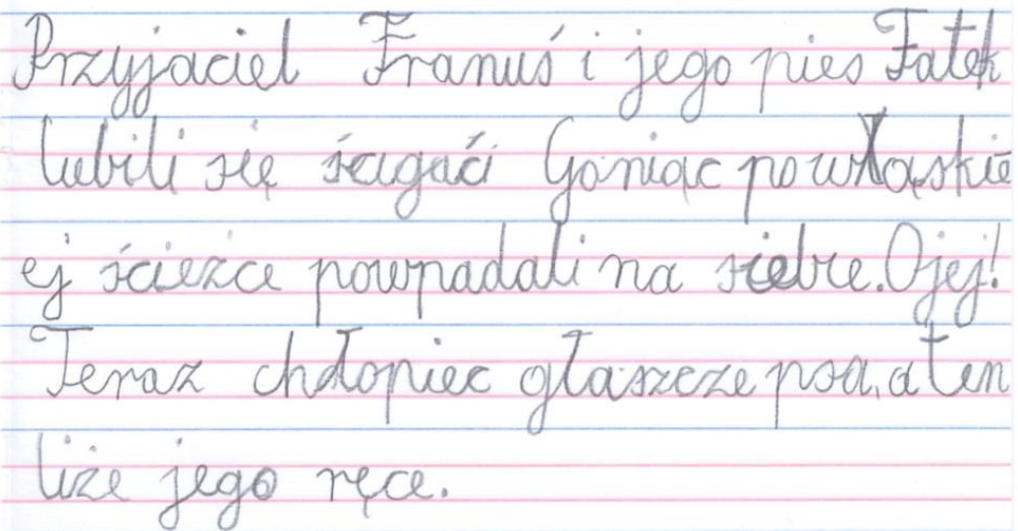 Przyjaciel Franuś i jego pies Fatek
lubili się ścigaći Goniąc po włąskie
ej ścieżce powpadali na siebie. Ojej!
Teraz chłopiec głaszcze psa, a ten
liże jego ręce.